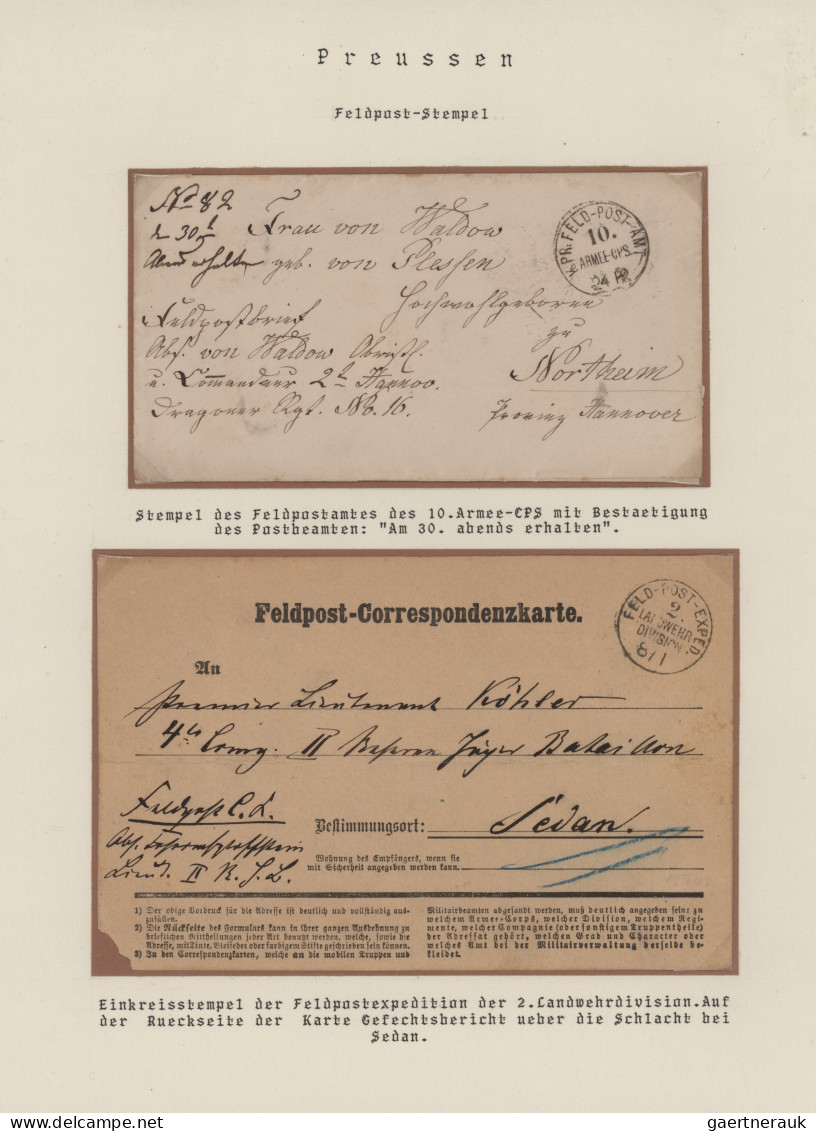 Preussen
Feldpost-Stempel
No 82
Frau von Waldow
geb. von Plessen
Hochwohlgeboren
zu
Northeim
Provinz Hannover
Feldpostbrief
Abs. von Waldow Obristl.
u. Commandeur 2t Hannov.
Dragoner Rgt. No. 16.
K. PR. FELD-POST-AMT
10.
ARMEE-CPS.
Stempel des Feldpostamtes des 10.Armee-CPS mit Bestaetigung
des Postbeamten: "Am 30. abends erhalten".
Feldpost-Correspondenzkarte.
FELD-POST-EXPED.
2.
LANDWEHR-
DIVISION.
8/1
An
Premier Lieutenant Köhler
4te Comp. II Reserve Jäger Bataillon
Feldpost C. K.
Bestimmungsort: Sedan.
Lieut. II R. J. B.
Wohnung des Empfängers, wenn sie
mit Sicherheit angegeben werden kann.
1) Der obige Vordruck für die Adresse ist deutlich und vollständig aus-
zufüllen.
2) Die Rückseite des Formulars kann in ihrer ganzen Ausdehnung zu
brieflichen Mittheilungen jeder Art benutzt werden, welche, sowie die
Adresse, mit Tinte, Bleifeder oder farbigem Stifte geschrieben sein können.
3) In den Correspondenzkarten, welche an die mobilen Truppen und
Militairbeamten abgesandt werden, muß deutlich angegeben sein: zu
welchem Armee-Corps, welcher Division, welchem Regi-
mente, welcher Compagnie (oder sonstigem Truppentheile)
der Adressat gehört, welchen Grad und Character oder
welches Amt bei der Militairverwaltung derselbe be-
kleidet.
Einkreisstempel der Feldpostexpedition der 2.Landwehrdivision.Auf
der Rueckseite der Karte Gefechtsbericht ueber die Schlacht bei
Sedan.
gaertnerauk